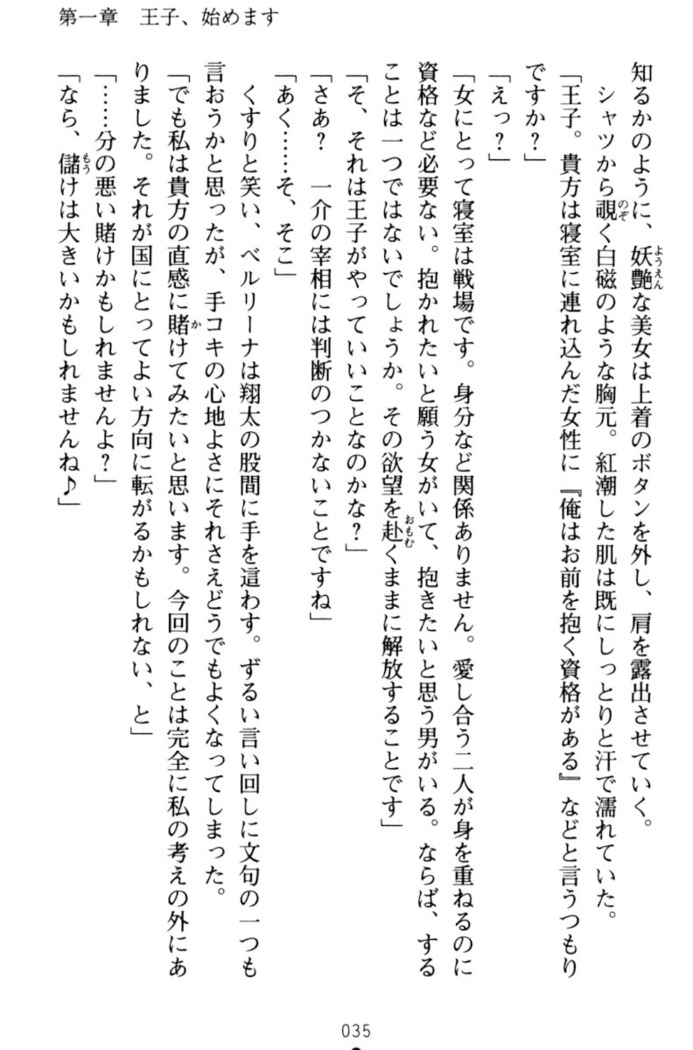 第一章　王子、始めます
知るかのように、妖艶な美女は上着のボタンを外し、肩を露出させていく。
　シャツから覗く白磁のような胸元。紅潮した肌は既にしっとりと汗で濡れていた。
「王子。貴方は寝室に連れ込んだ女性に『俺はお前を抱く資格がある』などと言うつもり
ですか？」
「えっ？」
「女にとって寝室は戦場です。身分など関係ありません。愛し合う二人が身を重ねるのに
資格など必要ない。抱かれたいと願う女がいて、抱きたいと思う男がいる。ならば、する
ことは一つではないでしょうか。その欲望を赴くままに解放することです」
「そ、それは王子がやっていいことなのかな？」
「さあ？　一介の宰相には判断のつかないことですね」
「あく……そ、そこ」
　くすりと笑い、ベルリーナは翔太の股間に手を這わす。ずるい言い回しに文句の一つも
言おうかと思ったが、手コキの心地よさにそれさえどうでもよくなってしまった。
「でも私は貴方の直感に賭けてみたいと思います。今回のことは完全に私の考えの外にあ
りました。それが国にとってよい方向に転がるかもしれない、と」
「……分の悪い賭けかもしれませんよ？」
「なら、儲けは大きいかもしれませんね♪」
035